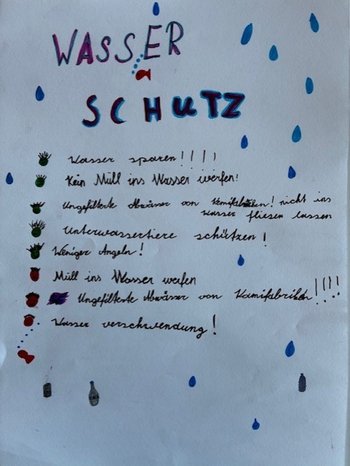 WASSER
SCHUTZ
Wasser sparen!!!!
Kein Müll ins Wasser werfen!
Ungefilterte Abwässer von Kemifabriken! nicht ins
wasser fliesen lassen
Unterwassertiere schützen!
Weniger Angeln!
Müll ins Wasser werfen
Ungefilterte Abwässer von Kemifabriken!!!!
Wasser verschwendung!